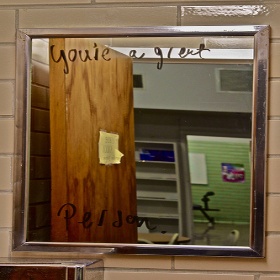 you're a great
Person.